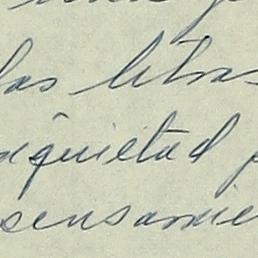 las letras
nquietud p
pensamie